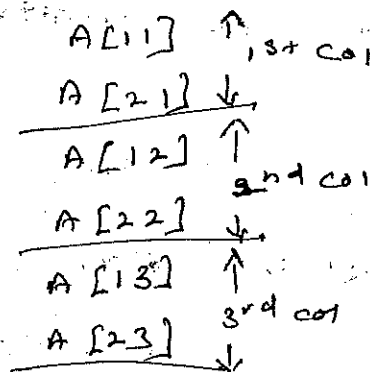 A[11]
1st col
A[21]
A[12]
2nd col
A[22]
A[13]
3rd col
A[23]